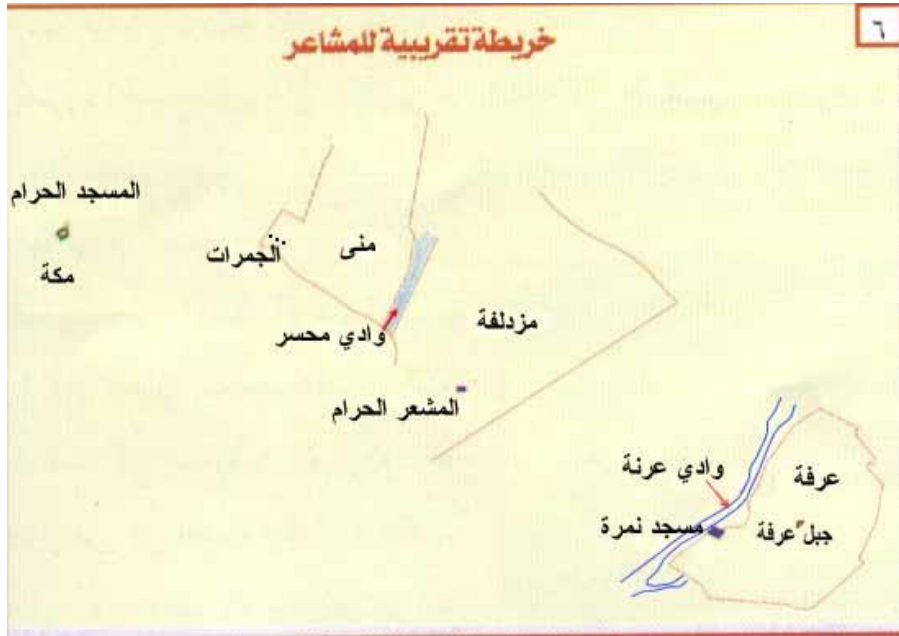 ٦
خريطة تقريبية للمشاعر
المسجد الحرام
مكة
الجمرات
منى
وادي محسر
مزدلفة
المشعر الحرام
وادي عرنة
عرفة
مسجد نمرة
جبل عرفة